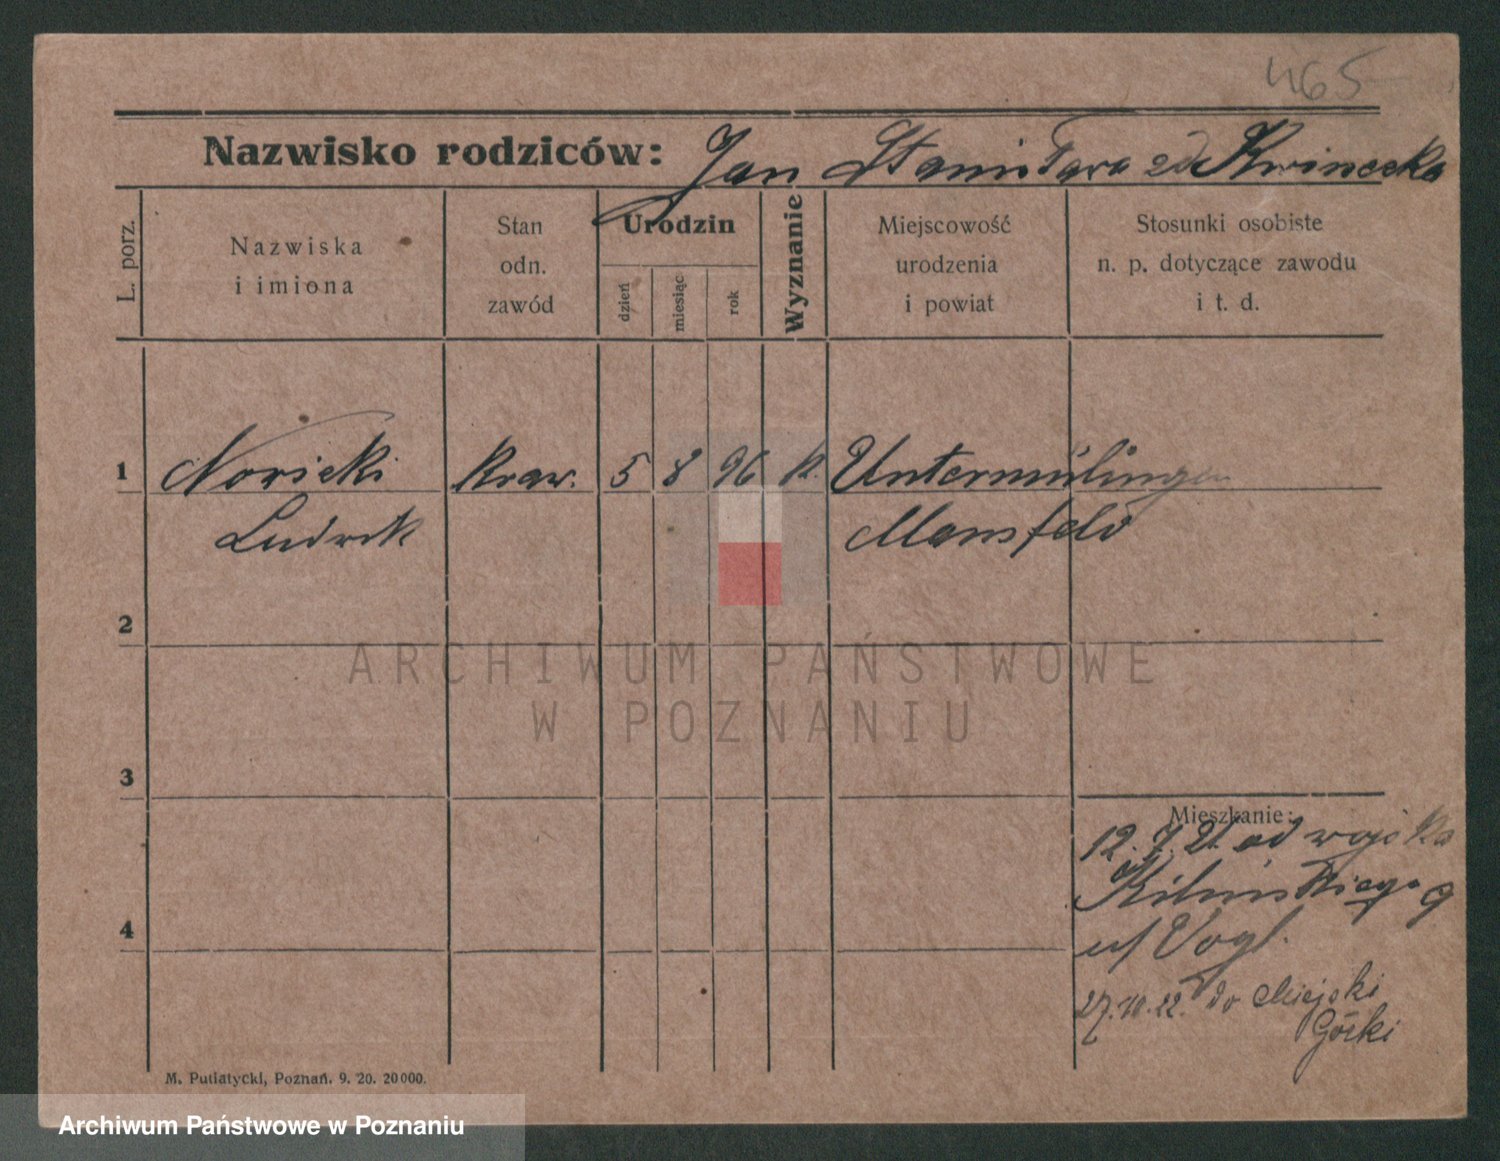 465
Nazwisko rodziców: Jan Stanisława zd Kwinecka
L. porz.
Nazwiska
i imiona
Stan
odn.
zawód
Urodzin
dzień
miesiąc
rok
Wyznanie
Miejscowość
urodzenia
i powiat
Stosunki osobiste
n. p. dotyczące zawodu
i t. d.
1 Nowicki kraw. 5 8 96 k. Untermülingen
Ludwik Mansfeld
2
ARCHIWUM PAŃSTWOWE
W POZNANIU
3
Mieszkanie:
12.7.21. od wojska
Kilińskiego 9
u/ Vogl.
4
27.10.22. do Miejski
Górki
M. Putiatycki, Poznań. 9. 20. 20000.
Archiwum Państwowe w Poznaniu